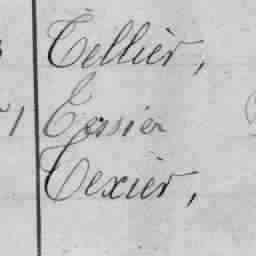 Tellier,
1 Tessier
Texier,